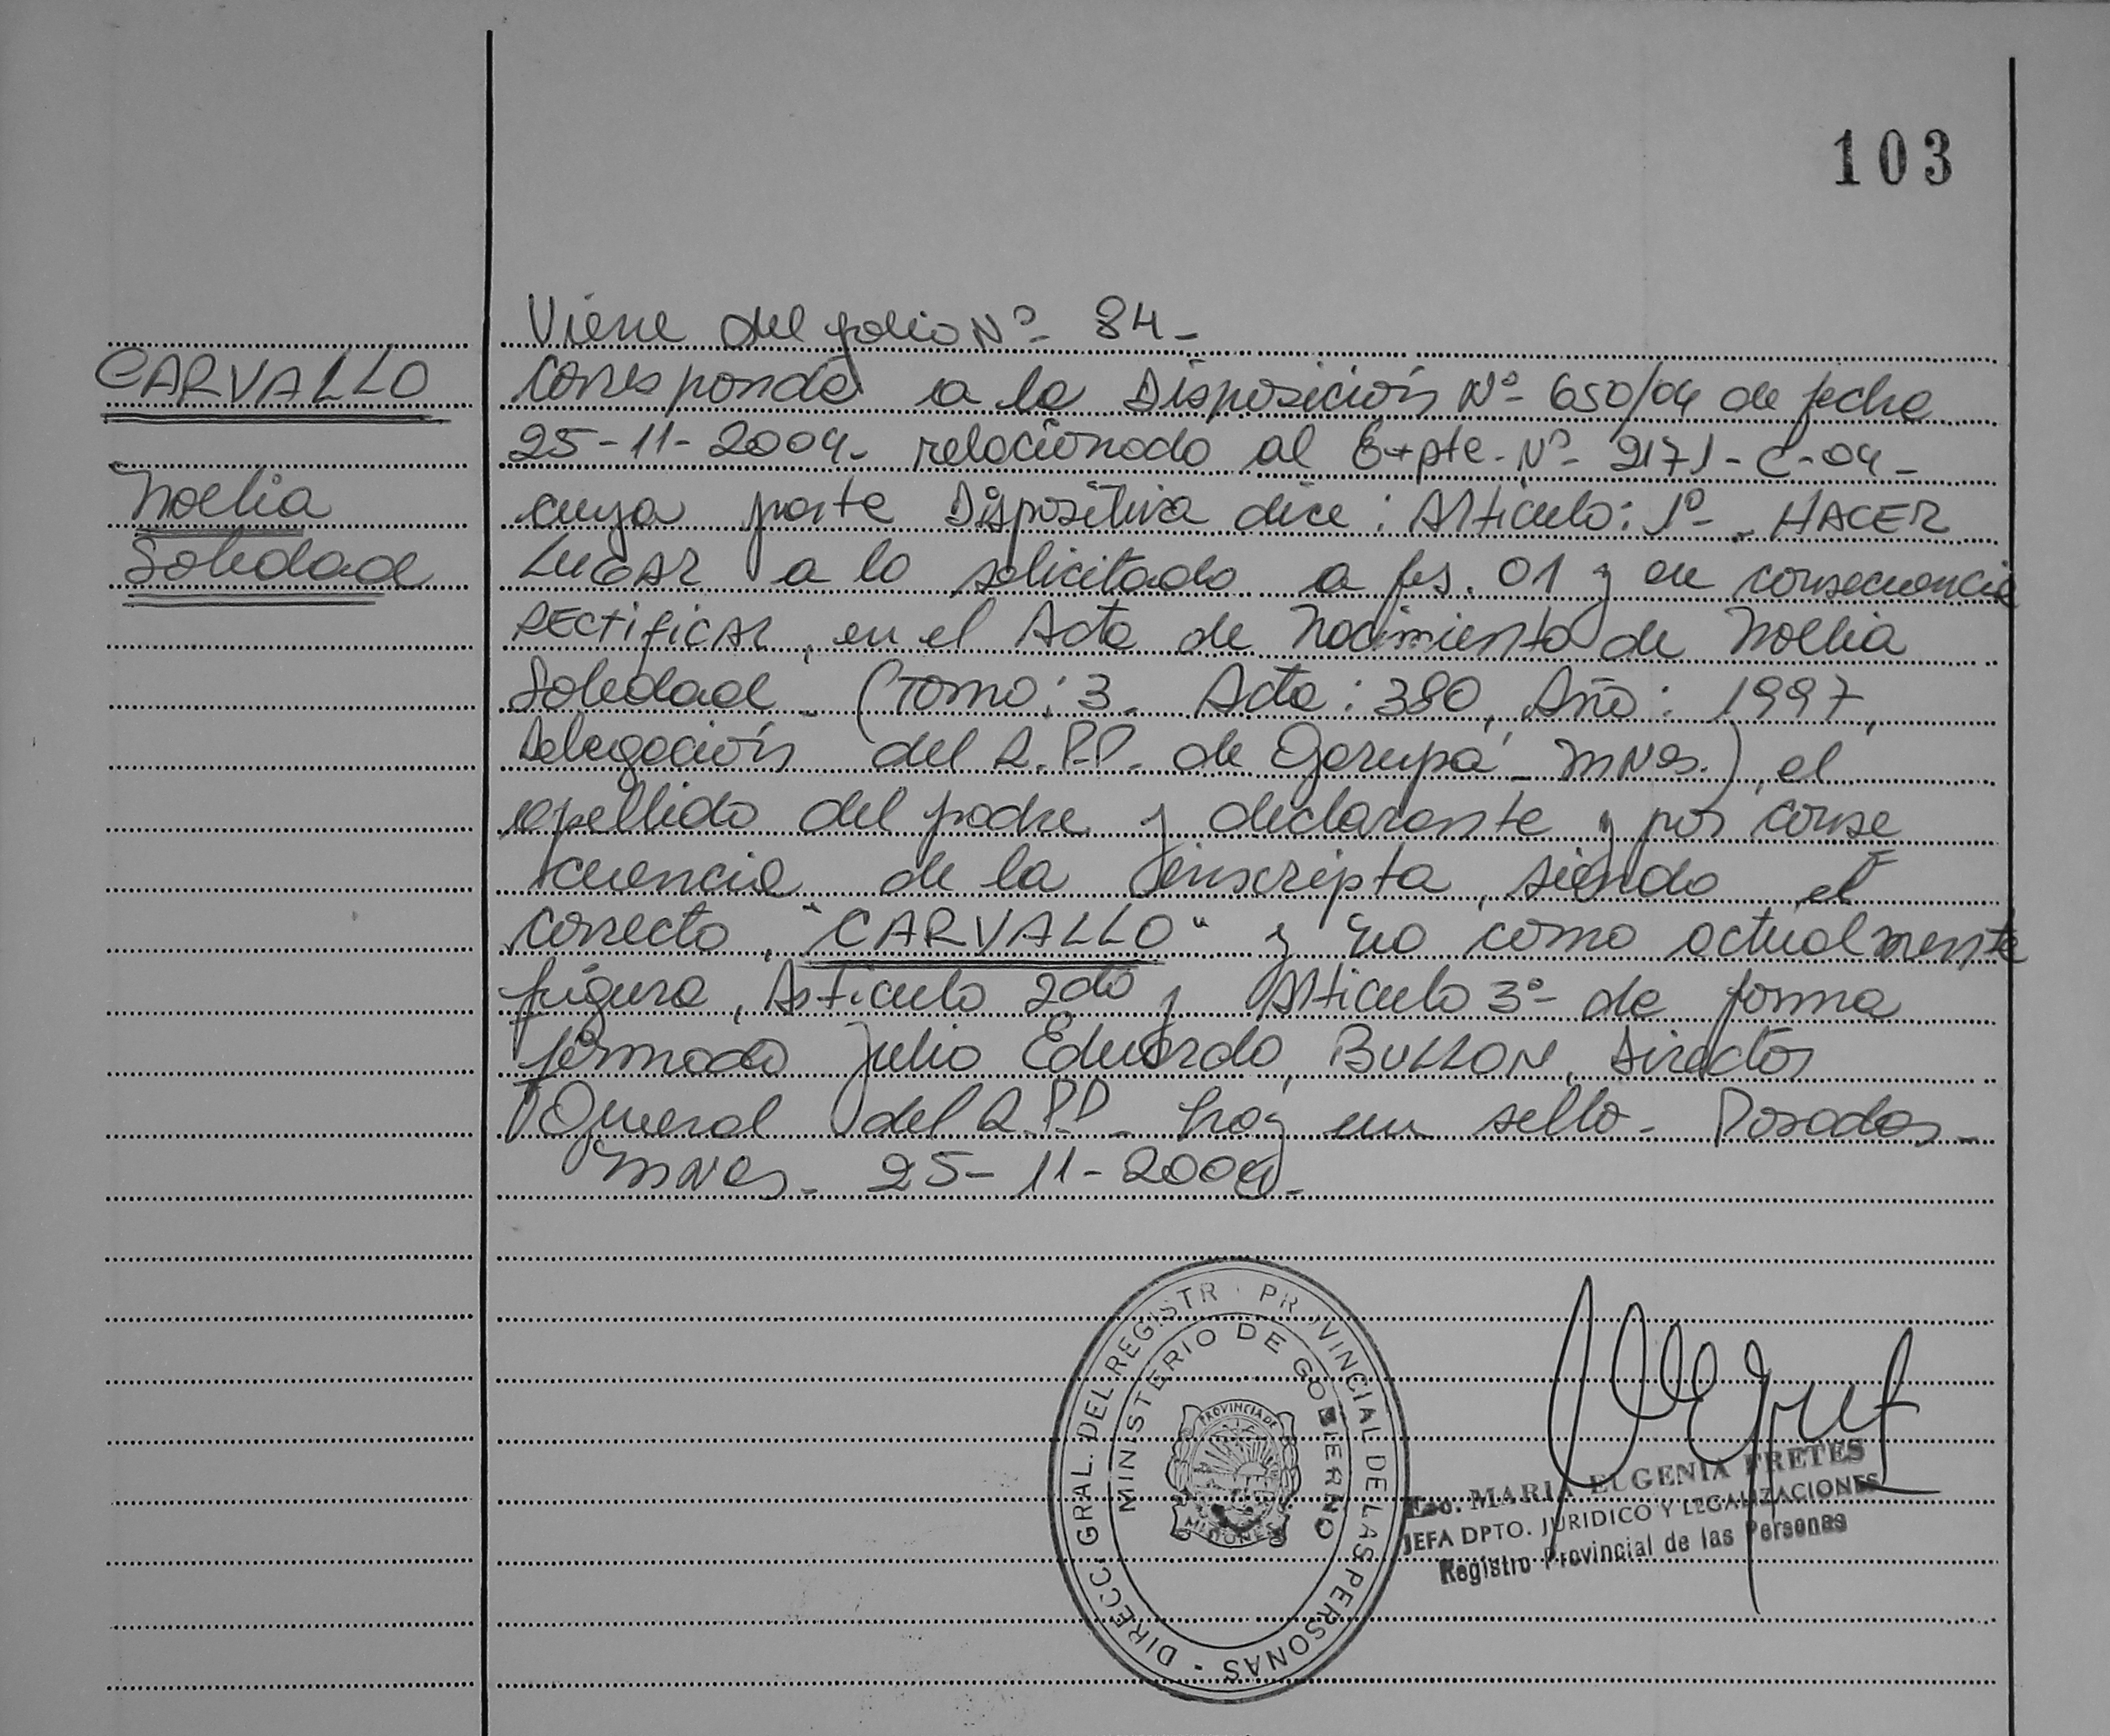 103
Viene del folio Nº 84-
CARVALLO
Noelia
Soledad
Corresponde a la Disposición Nº 650/04 de fecha
25-11-2004- relacionado al Expte. Nº 2171-C-04-
cuya parte Dispositiva dice: Articulo: 1º - HACER
LUGAR a lo solicitado a fs. 01 y en consecuencia
RECTIFICAR, en el Acta de Nacimiento de Noelia
Soledad - (Tomo: 3. Acta: 380, Año: 1997,
Delegación del R.P.P. de Garupá - Mnes.), el
apellido del padre y declarante y por conse
cuencia de la inscripta, siendo el
correcto, "CARVALLO" y no como actualmente
figura, Articulo 2do y Articulo 3º de forma
firmado Julio Eduardo, BULLON, Director
General del R.P.P. hay un sello- Posadas-
Mnes- 25-11-2004-
DIRECC. GRAL. DEL REGISTR PROVINCIAL DE LAS PERSONAS -
MINISTERIO DE GOBIERNO
PROVINCIA DE
MISIONES
Esc. MARIA EUGENIA FRETES
JEFA DPTO. JURIDICO Y LEGALIZACIONES
Registro Provincial de las Personas